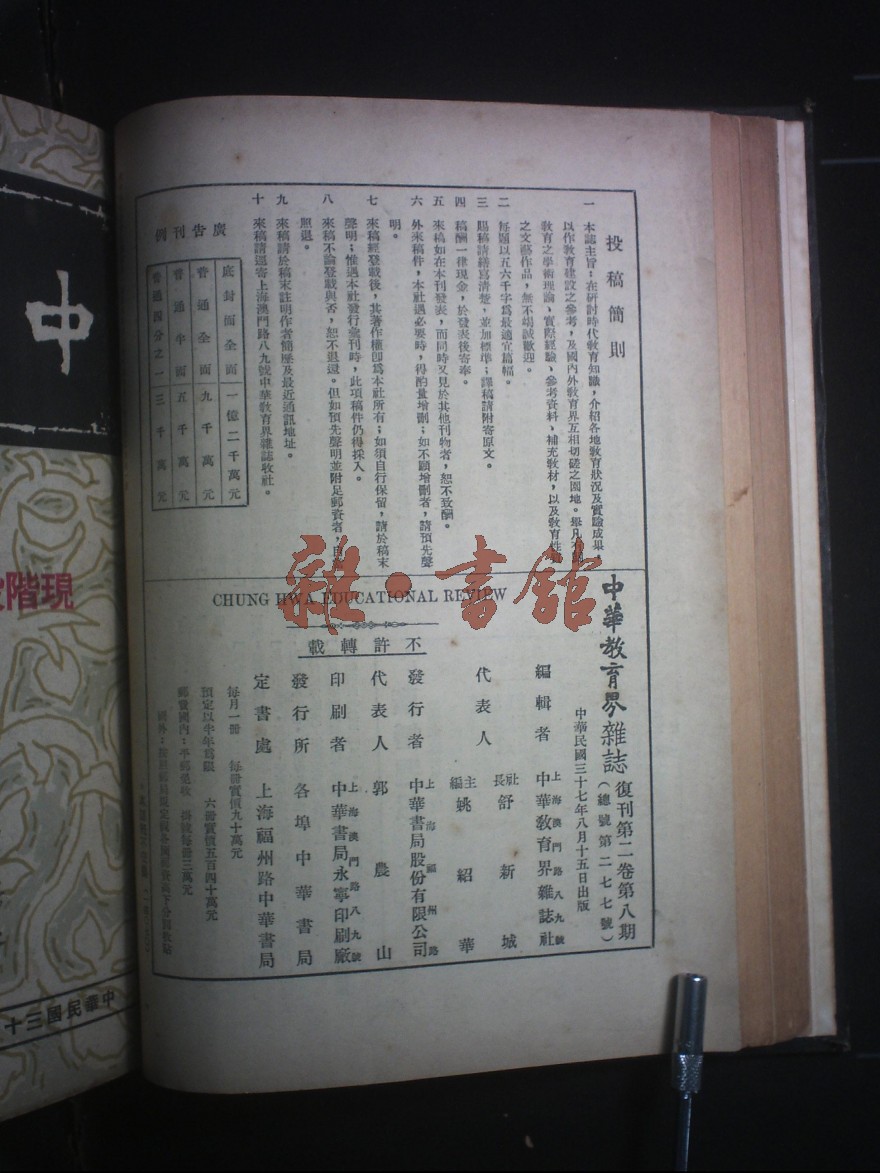 投稿簡則
一 本誌主旨:在研討時代教育知識,介紹各地教育狀況及實驗成果
以作教育建設之參考,及國內外教育界互相切磋之園地。舉凡有
教育之學術理論、實際經驗、參考資料、補充教材,以及教育性
之文藝作品,無不竭誠歡迎。
二 每題以五六千字為最適宜篇幅。
三 賜稿請繕寫清楚,並加標準;譯稿請附寄原文。
四 稿酬一律現金,於發表後寄奉。
五 來稿如在本刊發表,而同時又見於其他刊物者,恕不致酬。
六 外來稿件,本社遇必要時,得酌量增刪;如不願增刪者,請預先聲
明。
七 來稿經登載後,其著作權即為本社所有;如須自行保留,請於稿末
聲明;惟遇本社發行彙刊時,此項稿件仍得採入。
八 來稿不論登載與否,恕不退還。但如預先聲明並附足郵資者,自
照退。
九 來稿請於稿末註明作者簡歷及最近通訊地址。
十 來稿請逕寄上海澳門路八九號中華教育界雜誌收社。
廣告刊例
底封面全面 一億二千萬元
普通全面 九千萬元
普通半面 五千萬元
普通四分之一 三千萬元
中華教育界雜誌 復刊第二卷第八期
(總號第二七七號)
中華民國三十七年八月十五日出版
編輯者 中華教育界雜誌社
上海澳門路八九號
代表人 社長 舒新城
主編 姚紹華
發行者 中華書局股份有限公司
上海福州路
代表人 郭農山
印刷者 中華書局永寧印刷廠
上海澳門路八九號
發行所 各埠中華書局
定書處 上海福州路中華書局
不許轉載
CHUNG HWA EDUCATIONAL REVIEW
每月一冊 每冊實價九十萬元
預定以半年為限 六冊實價五百四十萬元
郵費國內:平郵免收 掛號每冊三萬元
雜·書館
中
現階
中華民國三十